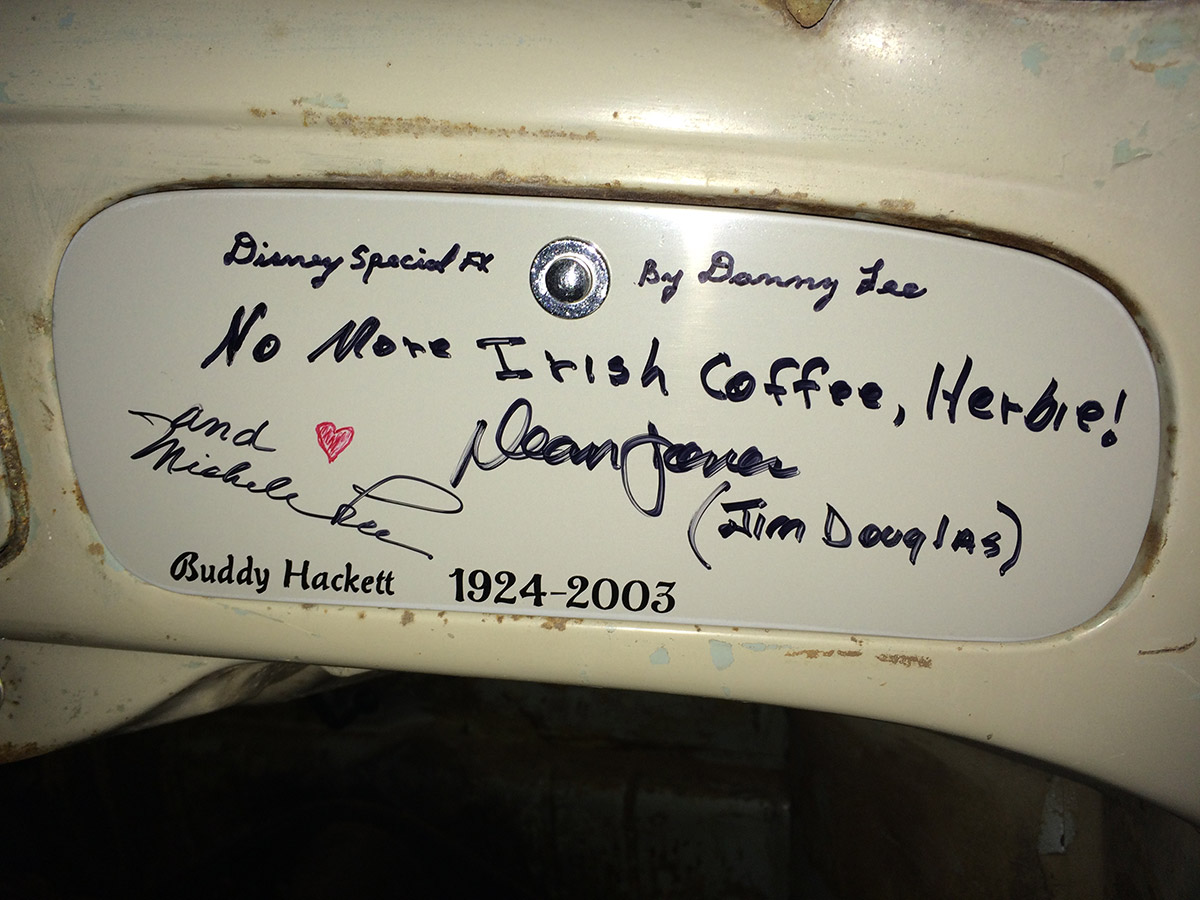 Disney Special FX By Danny Lee
No More Irish Coffee, Herbie!
Dean Jones
(Jim Douglas)
and
Michele Lee
Buddy Hackett 1924-2003